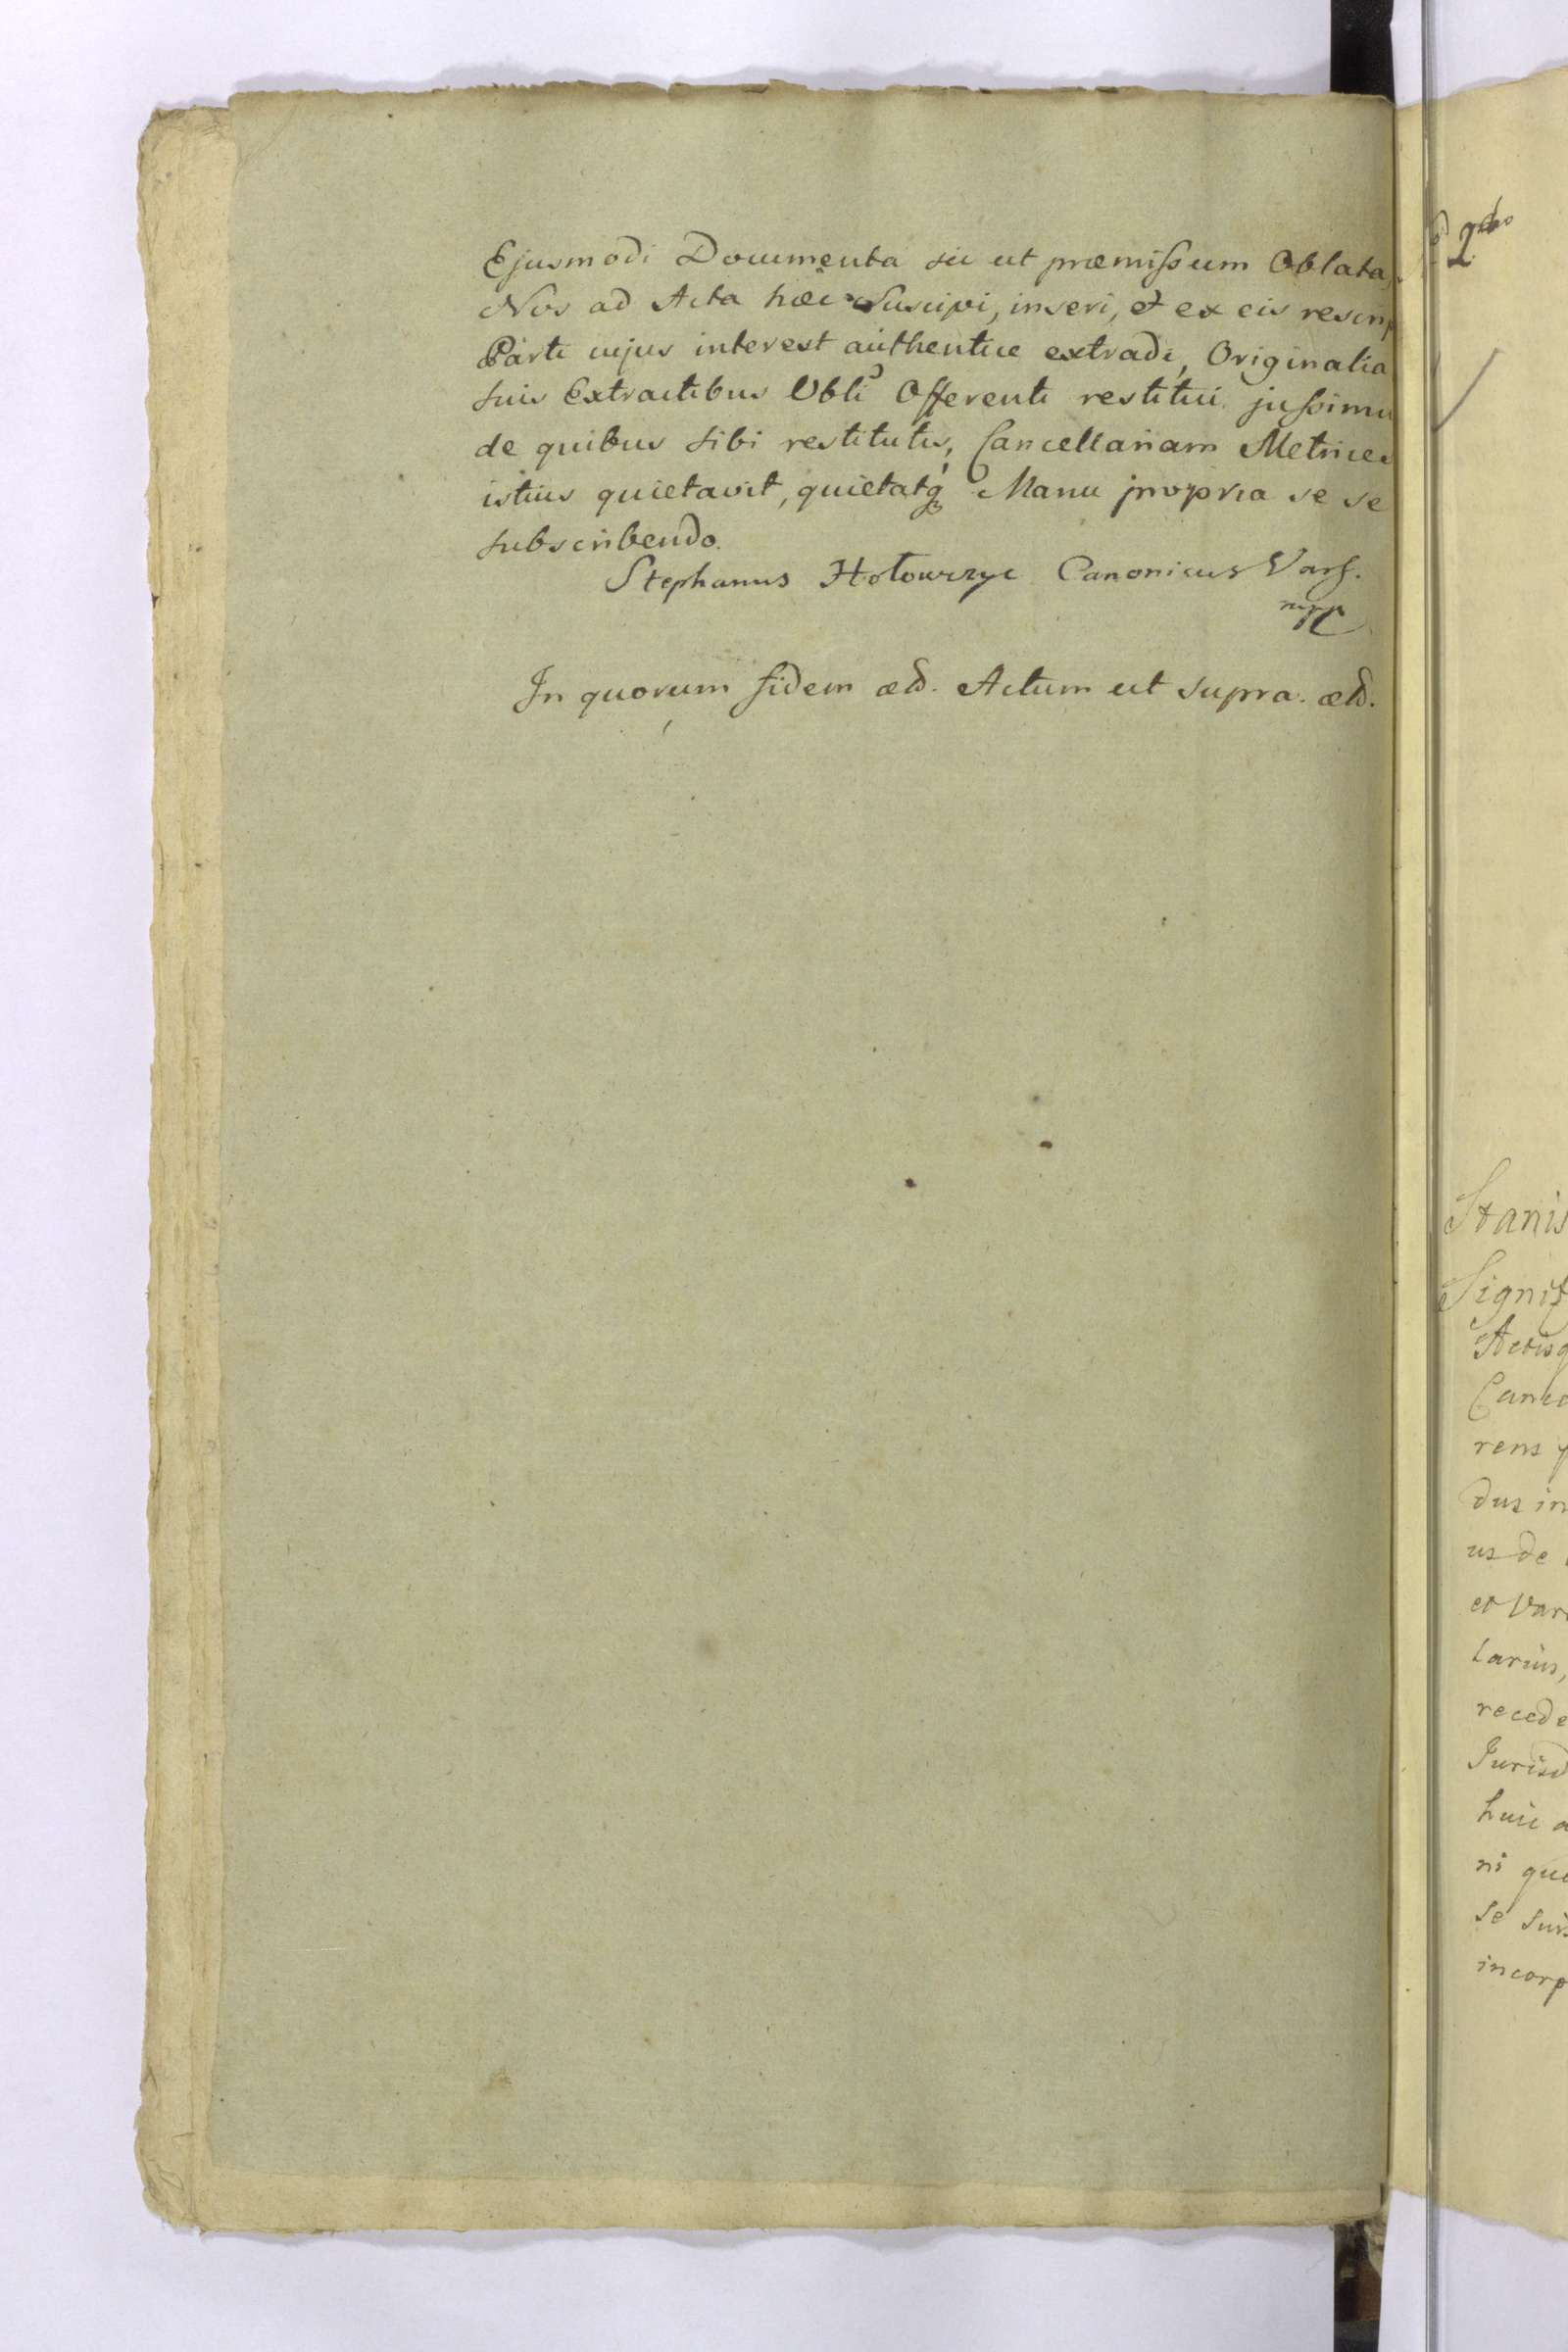 Ejusmodi Documenta sic ut præmiſsum Oblata,
Nos ad Acta hæc Suscipi, inseri, et ex eis rescrip
Parti cujus interest authentice extradi, Originalia
suis Extractibus Obli Offerenti restitui juſsimu
de quibus sibi restitutis, Cancellariam Metrices
istius quietavit, quietatq Manu propria se se
subscribendo.
Stephanus Hołowczyc Canonicus Vars.
mpp
In quorum fidem etc. Actum ut supra. etc.
2do
Stanis
Signif
Actisq
Cance
rens
dus in
us de
et Var
larius,
recede
Jurisd
huic a
ni que
se suis
incorp